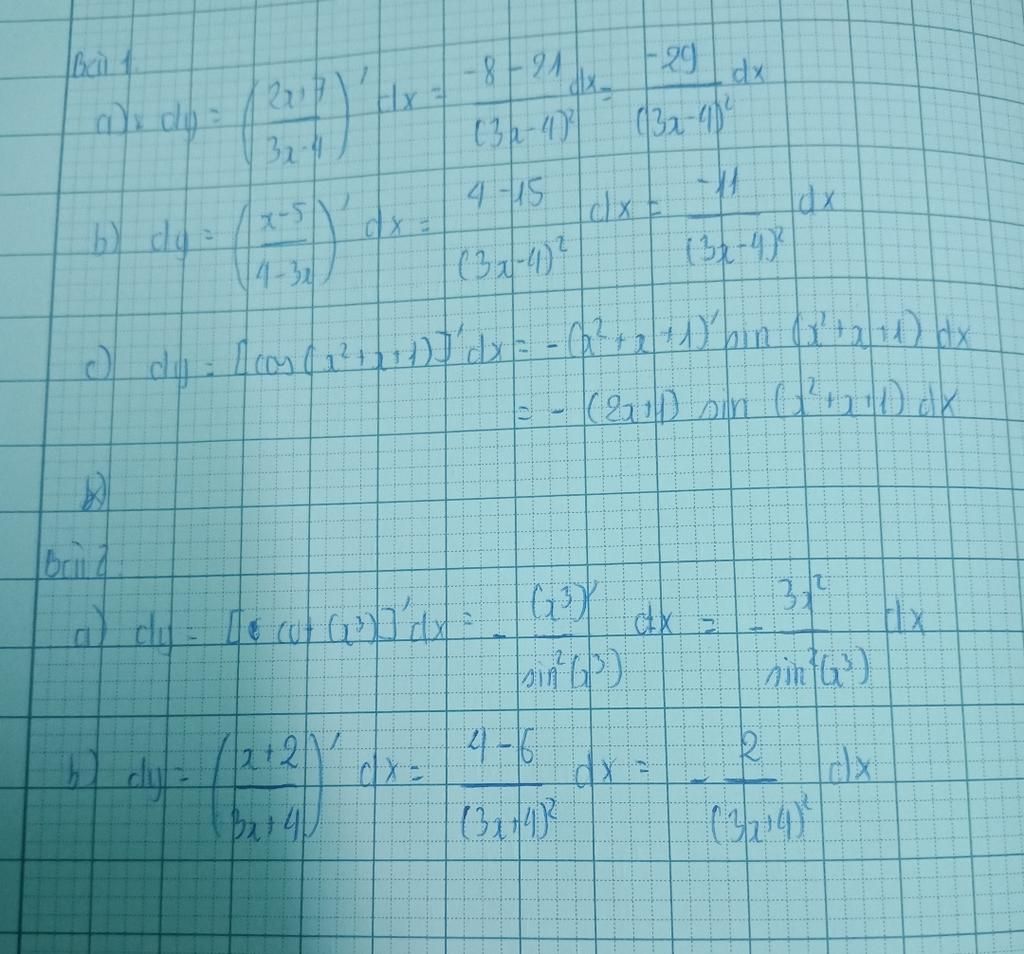 Bài 1.
a) dy = ((2x+7)/(3x-4))' dx = (-8-21)/(3x-4)² dx = -29/(3x-4)² dx
b) dy = ((x-5)/(4-3x))' dx = (4-15)/(3x-4)² dx = -11/(3x-4)² dx
c) dy = [cos(x²+x+1)]'dx = -(x²+x+1)' sin (x²+x+1) dx
= - (2x+1) sin (x²+x+1) dx
Bài 2.
a) dy = [cot (x³)]'dx = - (x³)'/sin²(x³) dx = - 3x²/sin²(x³) dx
b) dy = ((x+2)/(3x+4))' dx = (4-6)/(3x+4)² dx = - 2/(3x+4)² dx